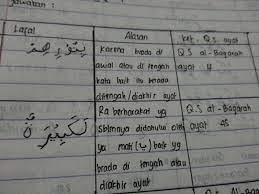 Jawaban :
Lafal | Alasan | ket. Q.S ayat
بِنُوْرِهِمْ | karena berada di | Q.S al-Baqarah
awal atau di tengah | ayat
kata baik itu berada
ditengah/diakhir ayat
لَكَبِيْرَةٌ | Ra berharakat yg | Q.S al-Baqarah
sblmnya didahului oleh | ayat 45
ya mati (ي) baik yg
brada di tengah atau
diakhir ayat